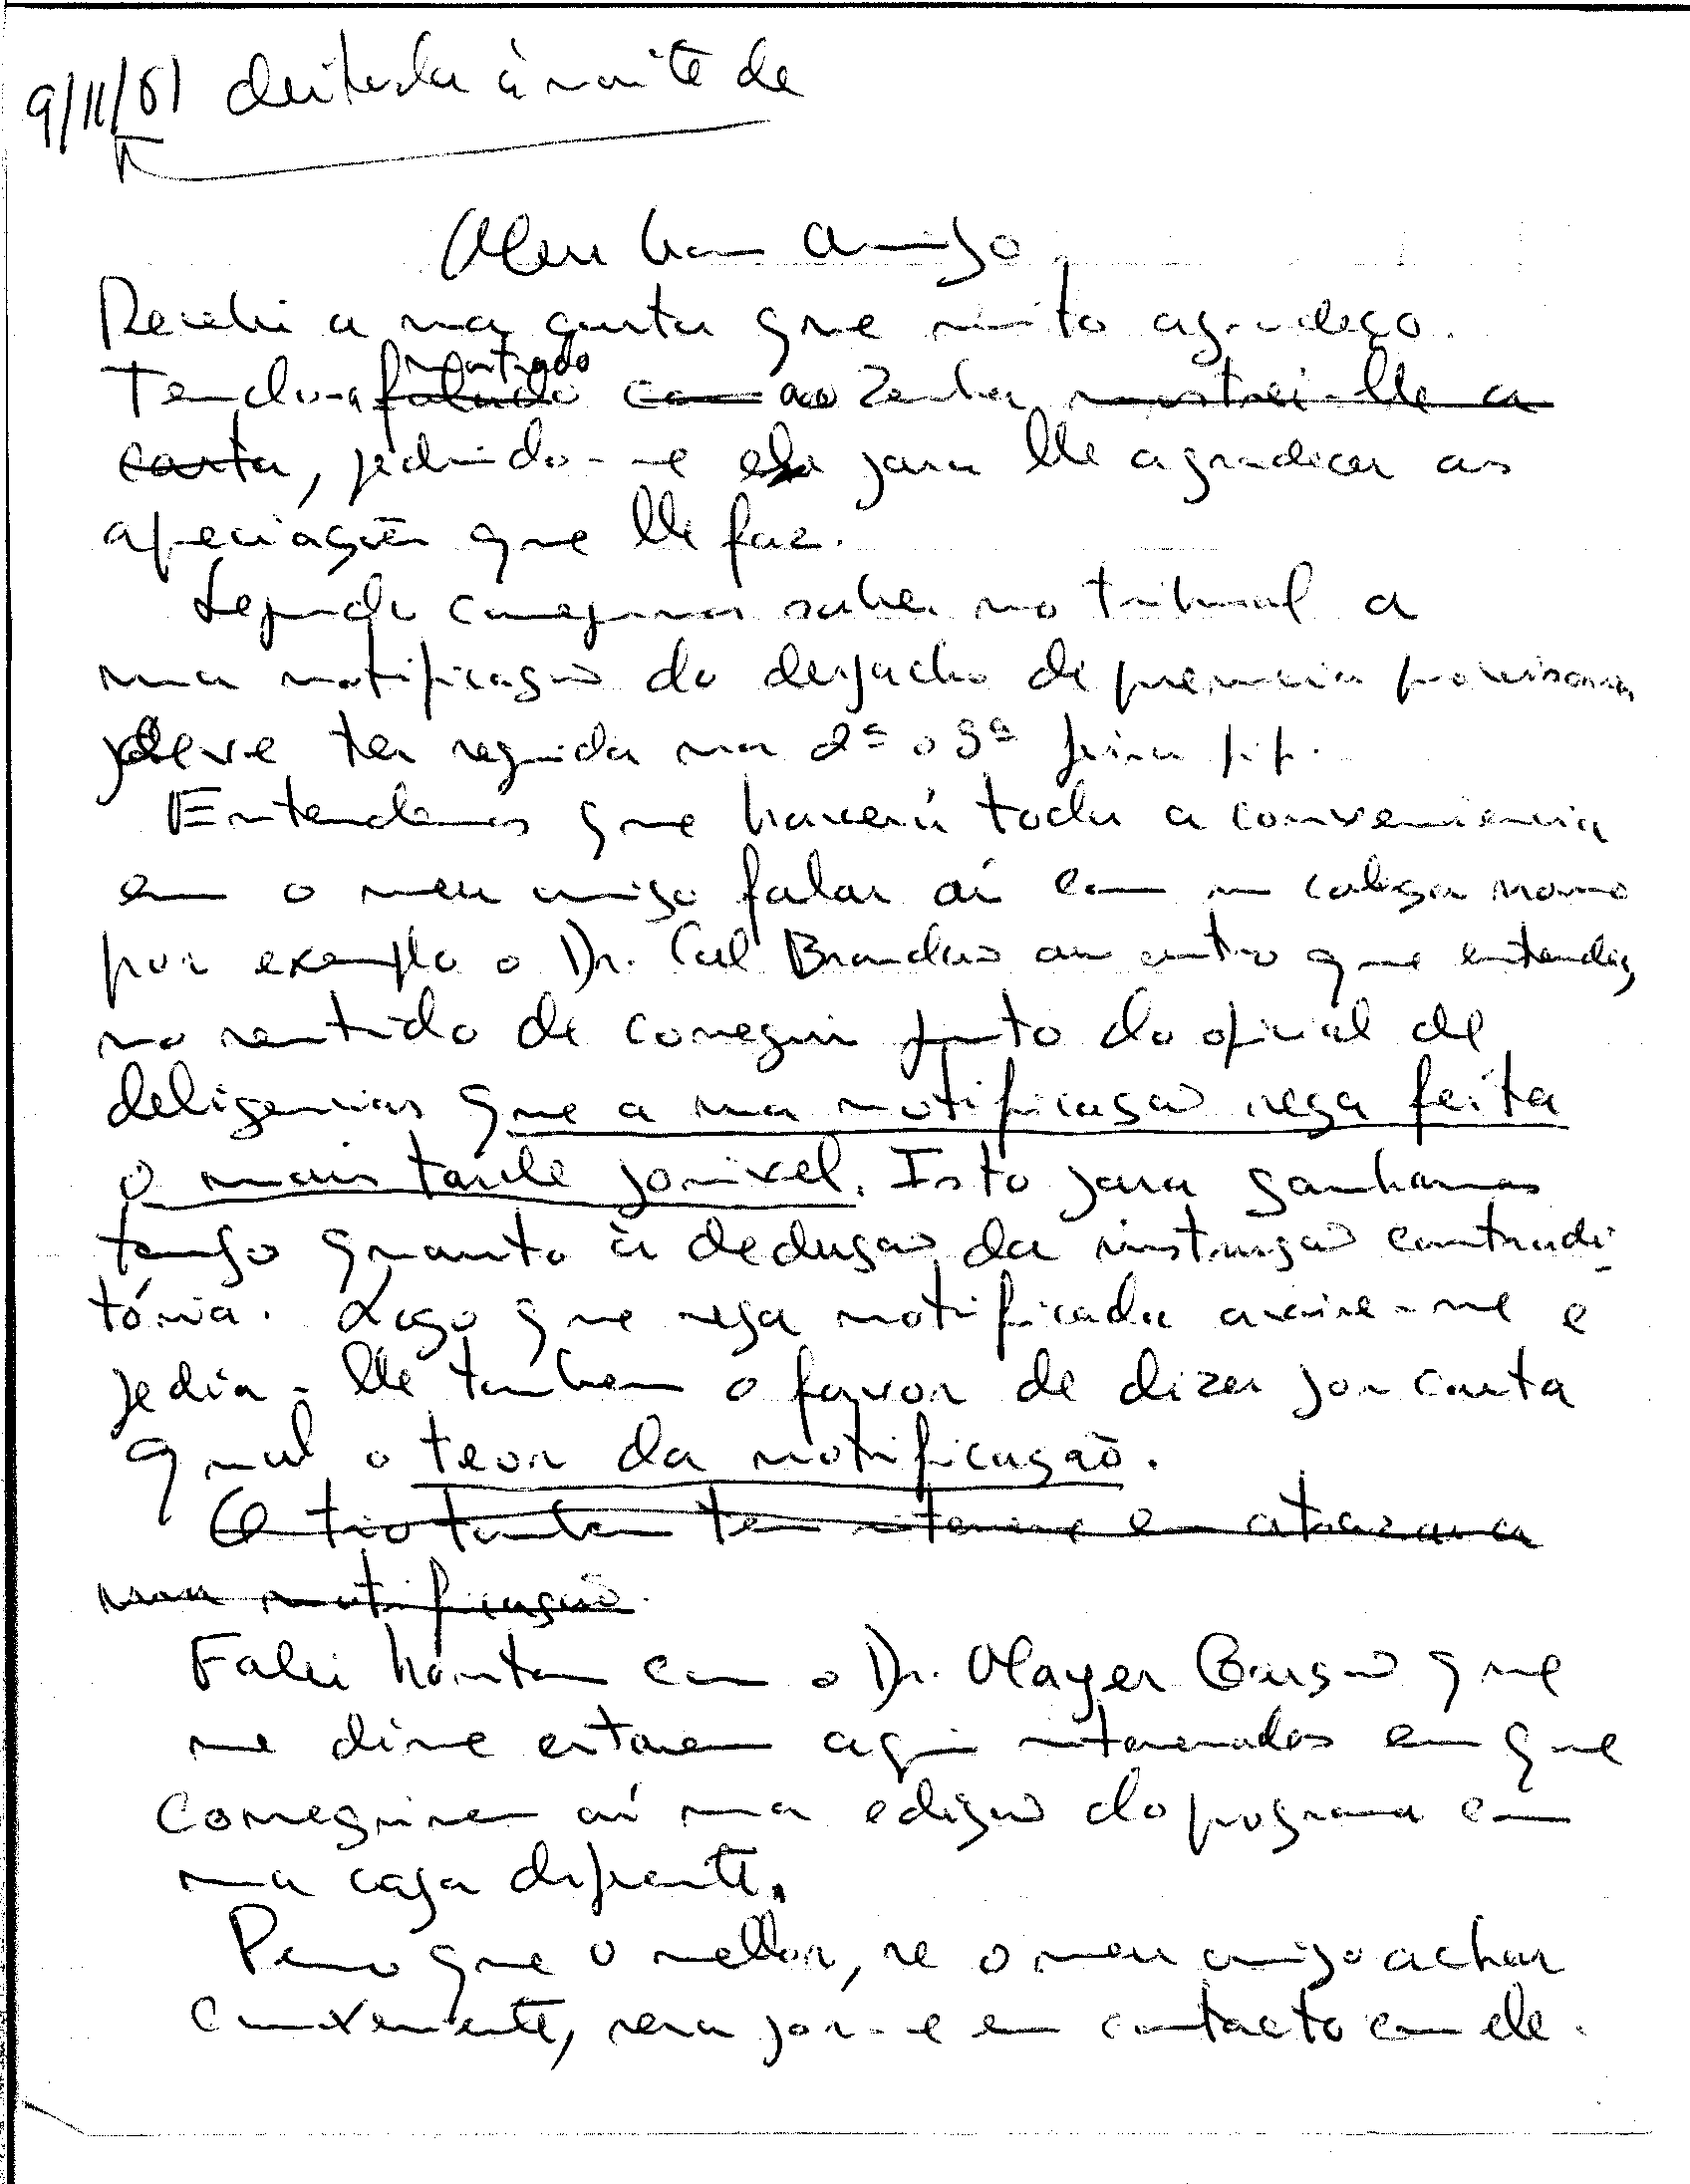 9/11/61 deitada à noite de
Meu bom amigo
Recebi a sua carta que muito agradeço.
Tendo-a falado mostrado com ao Zenha mostrei-lhe a
carta, pedindo-me ele para lhe agradecer as
apreciações que lhe faz.
Segundo conseguimos saber no tribunal a
sua notificação do despacho de pronuncia provisoria
deve ter seguido na 2ª o 3ª feira p.p.
Entendemos que haverá toda a conveniencia
em o meu amigo falar aí com um colega nosso
por exemplo o Dr. Cal Brandão ou outro que entenda,
no sentido de conseguir junto do oficial de
deligencias que a sua notificação seja feita
o mais tarde possivel. Isto para ganharmos
tempo quanto à dedução da instrução contradi-
tória. Logo que seja notificado avise-me e
pedia-lhe tambem o favor de dizer por carta
qual o teor da notificação.
O tio tambem tem interesse em atrazar a
sua notificação.
Falei hontem com o Dr. Mayer Garção que
me disse estarem aqui interessados em que
conseguissem aí uma edição do programa em
uma casa diferente.
Penso que o melhor, se o meu amigo achar
conveniente, sera pôr-se em contacto com ele.